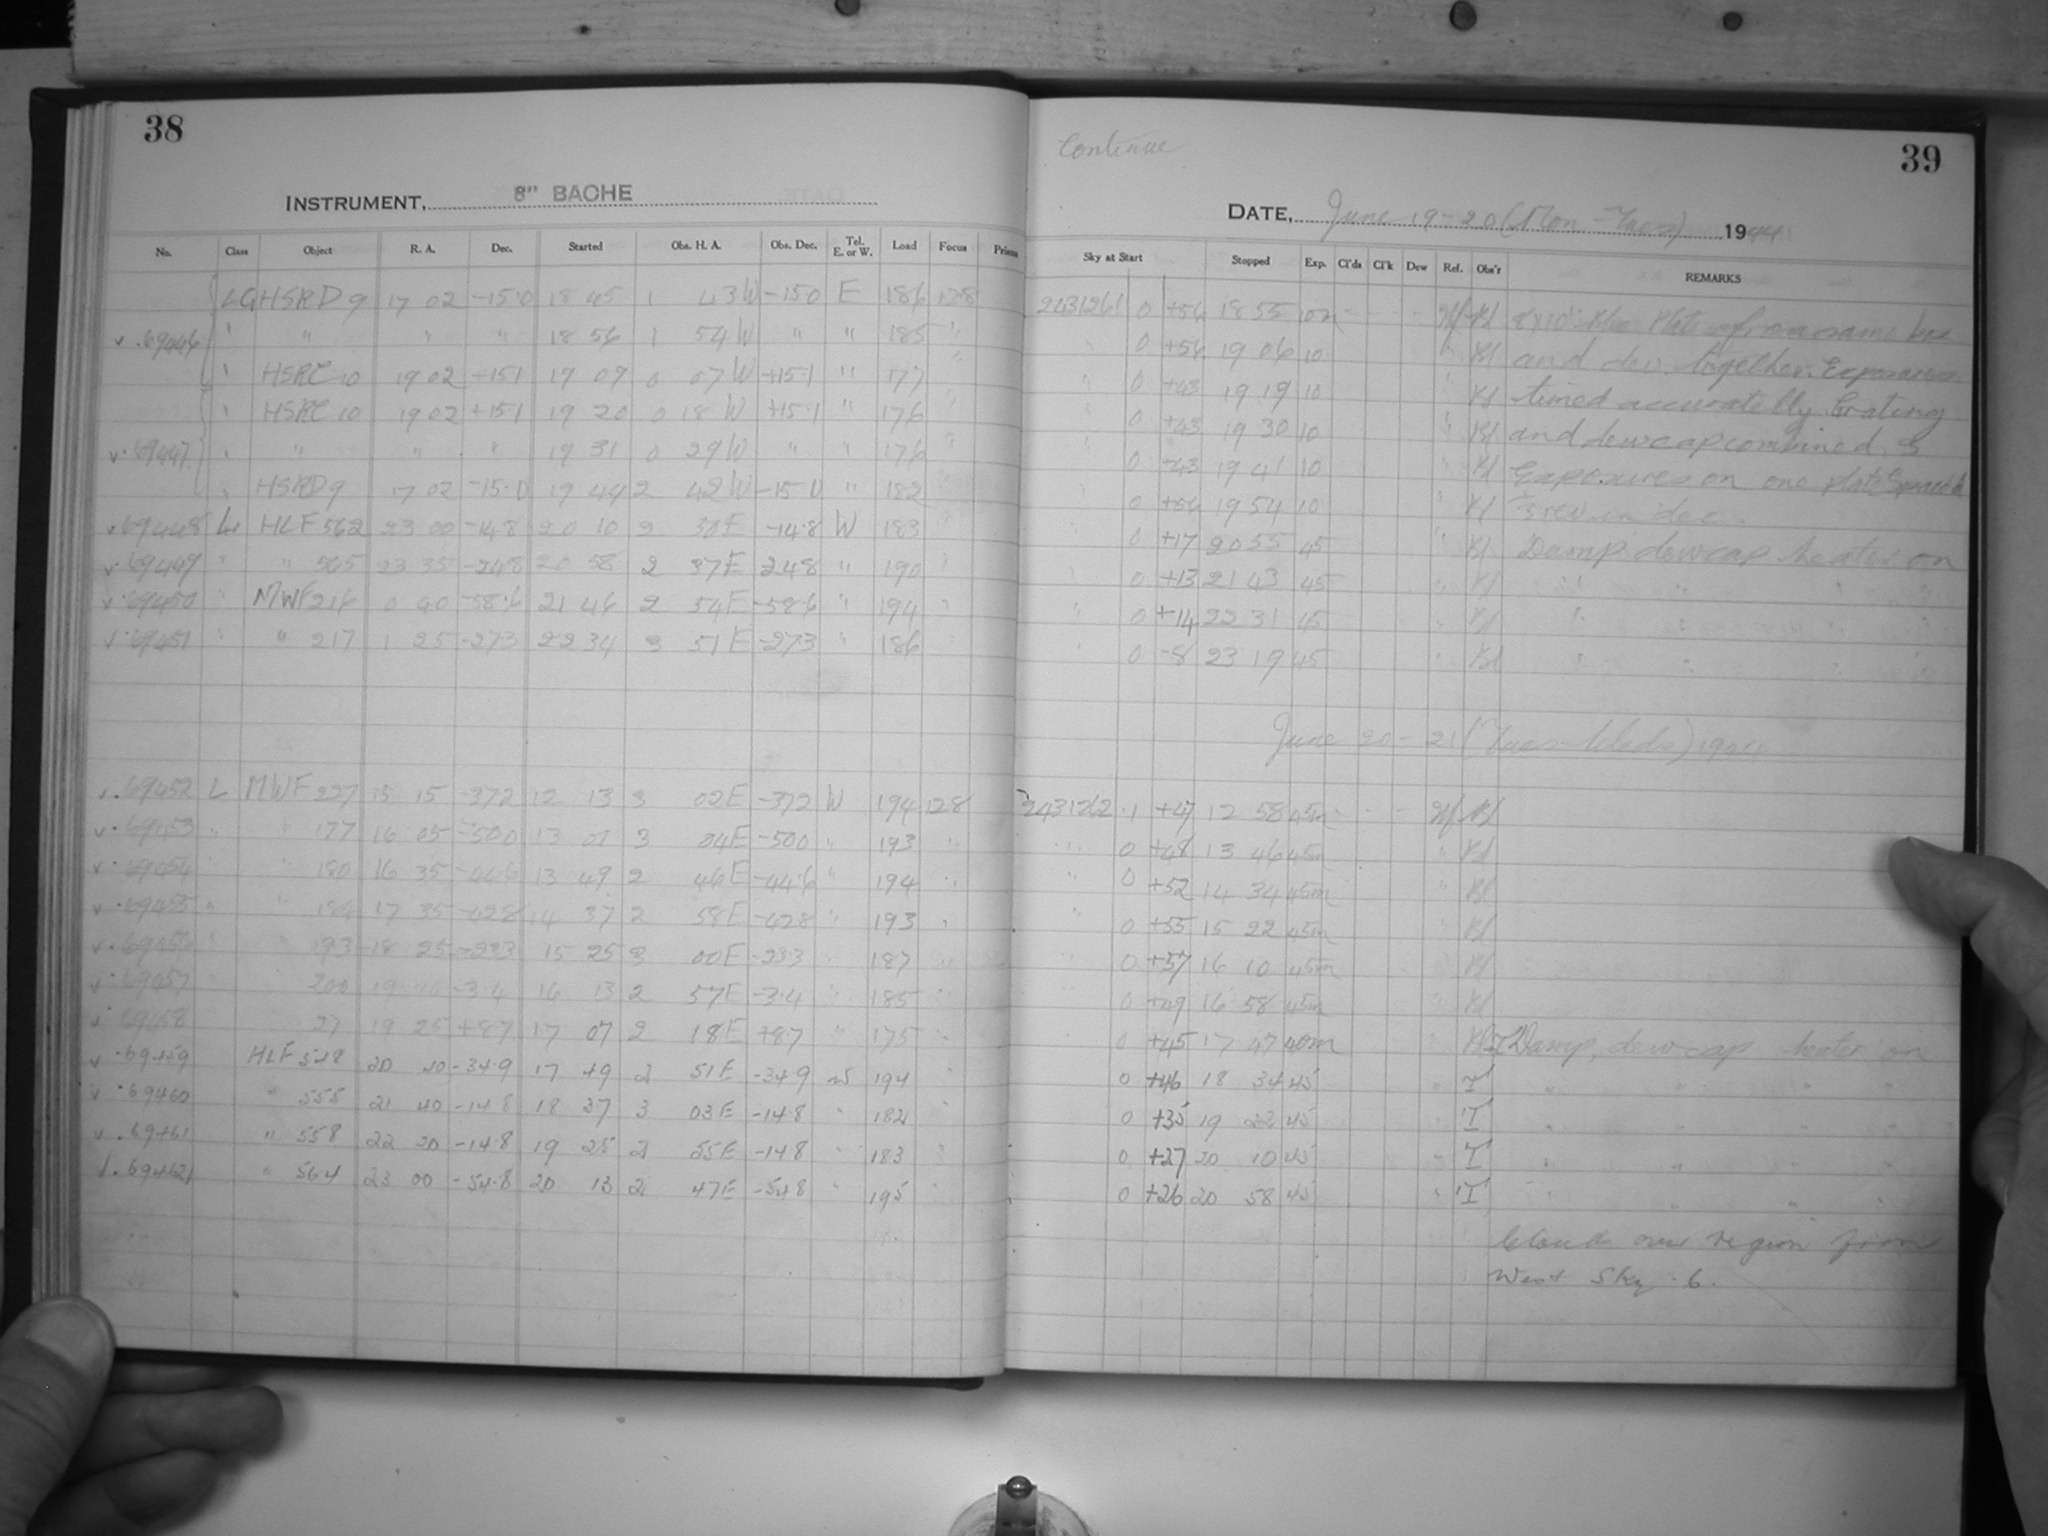 38
INSTRUMENT, 8" BACHE
No. Class Object R. A. Dec. Started Obs. H. A. Obs. Dec. Tel. E. or W. Load Focus Prism
LG HSRD 9 17 02 -15.0 18 45 1 43 W -15.0 E 186 12.8
v .69446 " " " " 18 56 1 54 W " " 185 "
" HSRC 10 19 02 +15.1 19 07 0 07 W +15.1 " 177 "
" HSRC 10 19 02 +15.1 19 20 0 18 W +15.1 " 176 "
v .69447 " " " " 19 31 0 29 W " " 176 "
" HSRD 9 17 02 -15.0 19 44 2 42 W -15.0 " 182 "
v .69448 L HLF 562 23 00 -14.8 20 10 2 38 E -14.8 W 183 "
v .69449 " " 565 23 35 -24.8 20 58 2 37 E 24.8 " 190 "
v .69450 " MWF 216 0 40 -58.6 21 46 2 54 E -58.6 " 194 "
v .69451 " " 217 1 25 -27.3 22 34 3 51 E -27.3 " 186
v .69452 L MWF 227 15 15 -37.2 12 13 3 02 E -37.2 W 194 12.8
v .69453 " " 177 16 05 -50.0 13 01 3 04 E -50.0 " 193 "
v .69454 " " 180 16 35 -44.6 13 49 2 46 E -44.6 " 194 "
v .69455 " " 184 17 35 -42.8 14 37 2 58 E -42.8 " 193 "
v .69456 " " 193 18 25 -23.3 15 25 3 00 E -23.3 187 "
v .69457 " 200 19 10 -3.4 16 13 2 57 E -3.4 " 185 "
v .69458 " 27 19 25 +8.7 17 07 2 18 E +8.7 " 175 "
v .69459 HLF 548 20 40 -34.9 17 49 2 51 E -34.9 W 194 "
v .69460 " 555 21 40 -14.8 18 37 3 03 E -14.8 " 182 "
v .69461 " 558 22 20 -14.8 19 25 2 55 E -14.8 " 183 "
v .69462 " 564 23 00 -54.8 20 13 2 47 E -54.8 " 195 "
Continue
39
DATE, June 19-20 (Mon-Tues) 1944
Sky at Start Stopped Exp. Cl'ds Cl'k Dew Ref. Obs'r REMARKS
2431261 0 +54 18 55 10m - - - Bl 8x10" Plates from same box
" 0 +54 19 06 10 " Bl and dev. together. Exposures
" 0 +43 19 19 10 " Bl timed accurately. Grating
" 0 +43 19 30 10 " Bl and dewcap combined. 3
" 0 +43 19 41 10 " Bl Exposures on one plate spaced
" 0 +54 19 54 10 " Bl rev. in dec.
0 +17 20 55 45 " Bl Damp. dewcap heater on
0 +13 21 43 45 " Bl " " " "
" 0 +14 22 31 45 " Bl " " " "
" 0 -8 23 19 45 " Bl " " " "
June 20-21 (Tues-Weds) 1944
2431262 .1 +47 12 58 45m - - - Bl
" 0 +48 13 46 45m " Bl
" 0 +52 14 34 45m " Bl
" 0 +55 15 22 45m Bl
" 0 +57 16 10 45m " Bl
" 0 +49 16 58 45m " Bl
" 0 +45 17 47 40m Bl+T Damp, dewcap heater on
0 +46 18 34 45 " T " " " "
0 +35 19 22 45 T " " " "
0 +27 20 10 45 " T " " " "
0 +26 20 58 45 " T " " " "
Clouds over region from
West Sky .6.